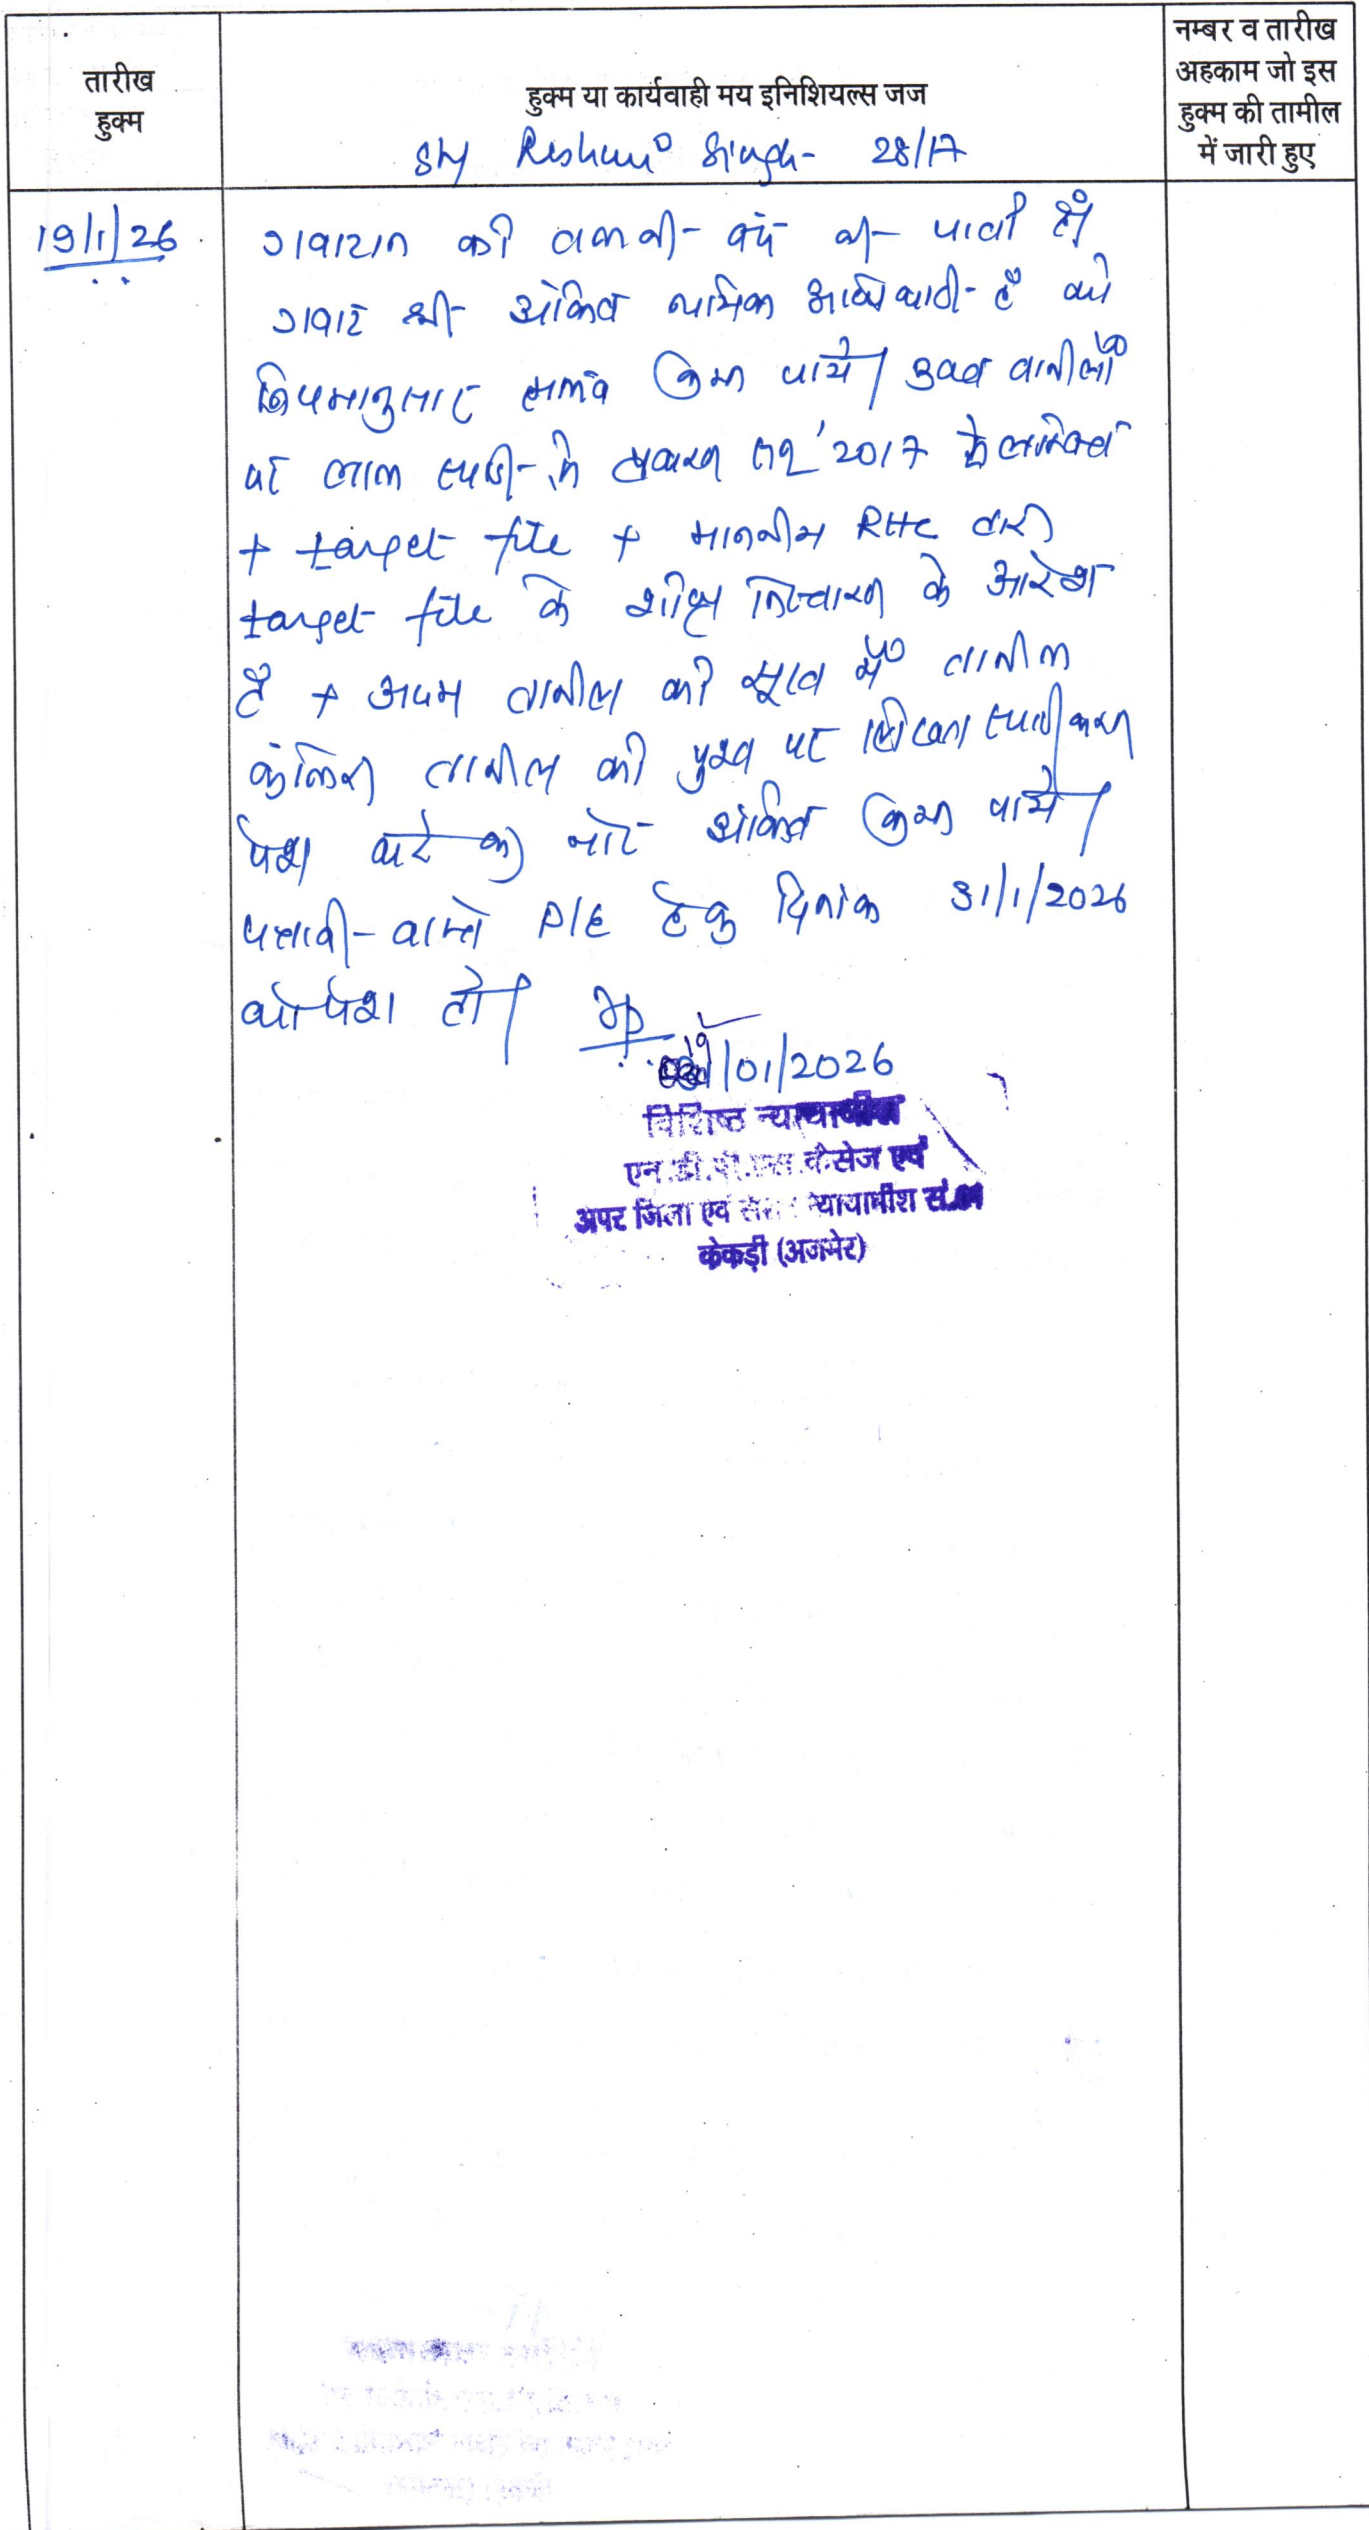 तारीख
हुक्म
हुक्म या कार्यवाही मय इनिशियल्स जज
नम्बर व तारीख
अहकाम जो इस
हुक्म की तामील
में जारी हुए
Singh - 28/17
19/1/26
गवाहान की तलबी - बंद की - जाती है।
गवाह श्री अंकित न्यायिक अधिकारी - है को
नियमानुसार तलब किया जाये। उक्त तामीलों
पर लाल स्याही - से प्रकरण सन् '2017 से लम्बित
+ target file + माननीय RHC द्वारा
target file के शीघ्र निस्तारण के आदेश
है + अदम तामील की सूरत में तामील
कुंनिदा तामील की पुश्त पर लिखित स्पष्टीकरण
पेश करे का नोट अंकित किया जाये।
पत्रावली - वास्ते P/E हेतु दिनांक 31/1/2026
को पेश हो।
19/01/2026
विशिष्ठ न्यायाधीश
एन.डी.पी.एस.केसेज एवं
अपर जिला एवं सेशन न्यायाधीश सं.01
केकड़ी (अजमेर)